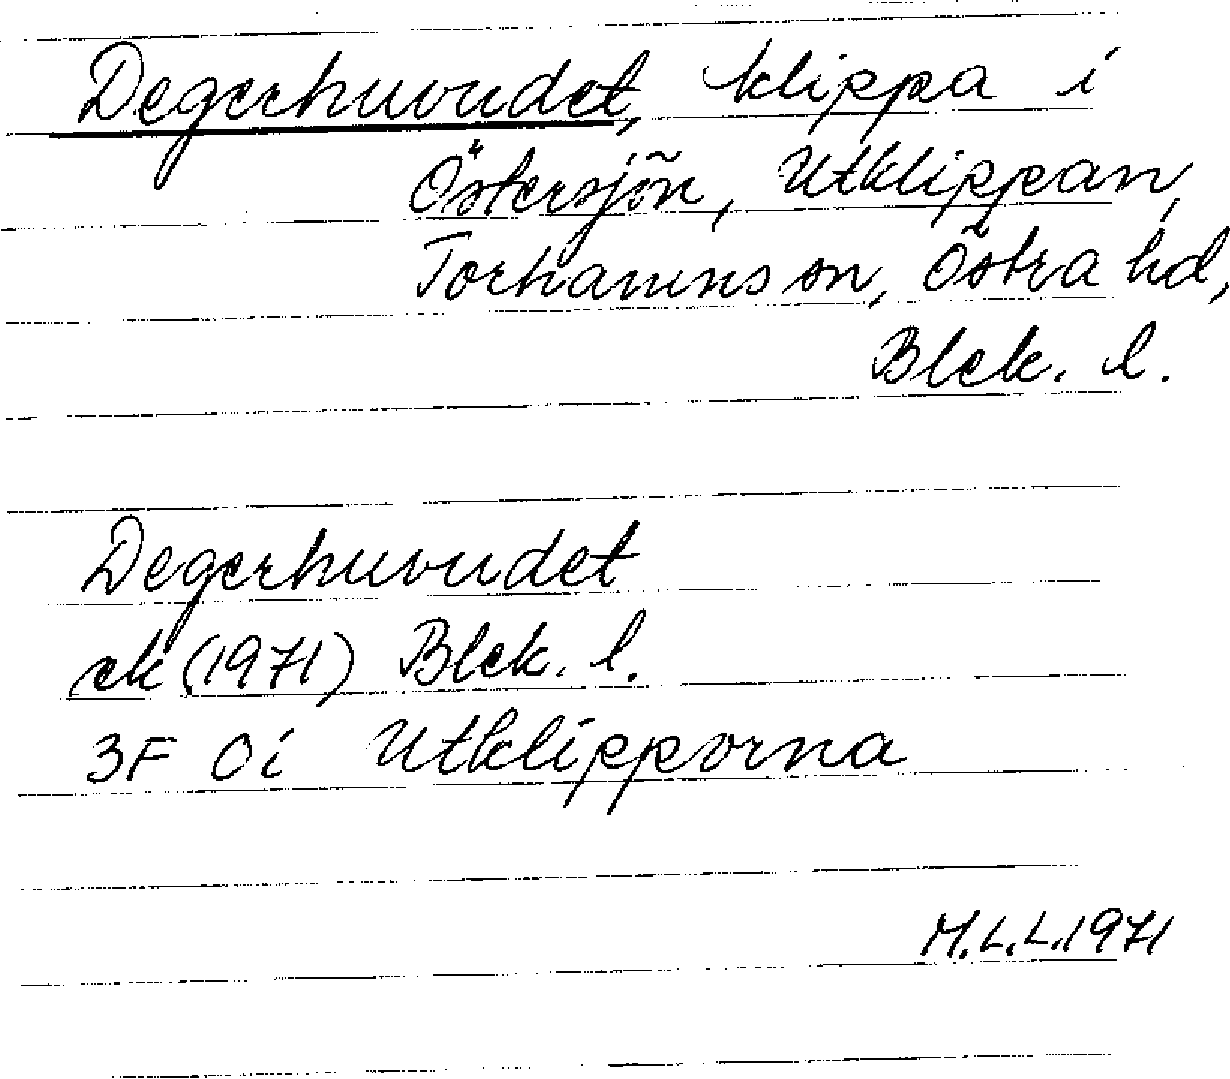 Degerhuvudet, klippa i
Östersjön, Utklippan,
Torhamns sn, Östra hd,
Blek. l.
Degerhuvudet
ek (1971) Blek. l.
3F 0i Utklipporna
M.L.L. 1971